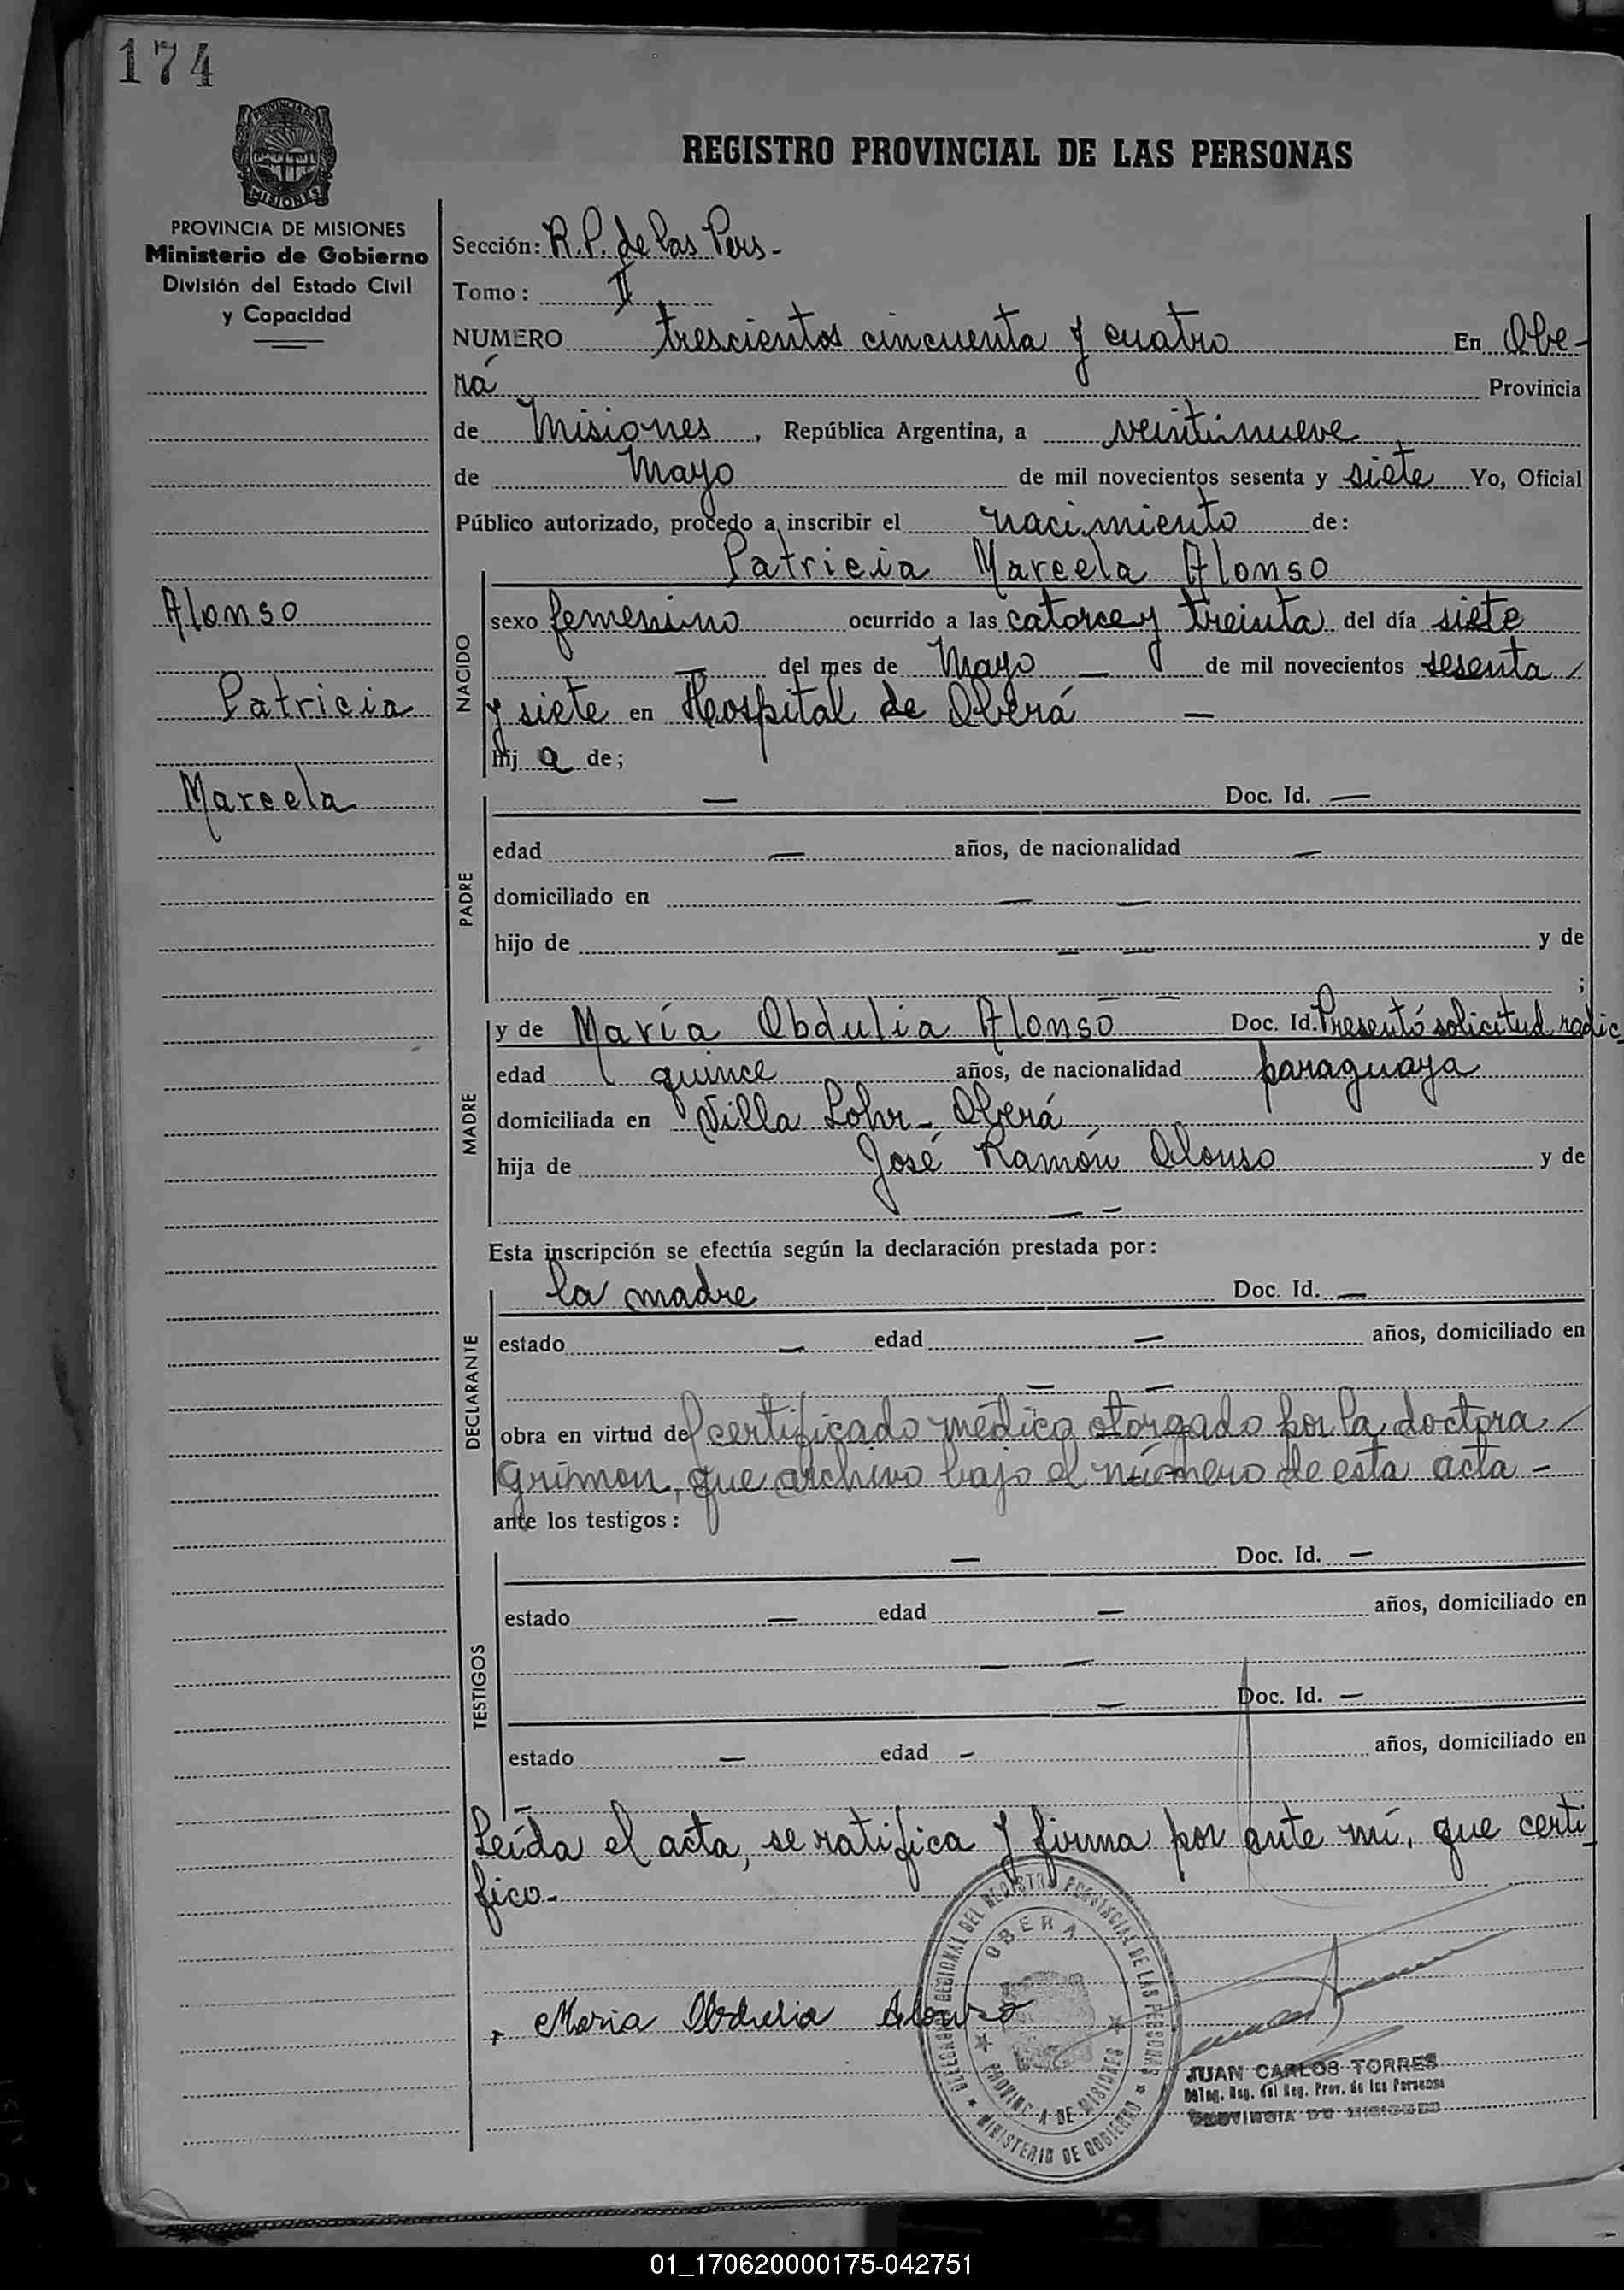 174
PROVINCIA DE
MISIONES
PROVINCIA DE MISIONES
Ministerio de Gobierno
División del Estado Civil
y Capacidad
Alonso
Patricia
Marcela
REGISTRO PROVINCIAL DE LAS PERSONAS
Sección: R.P. de las Pers-
Tomo: II
NUMERO trescientos cincuenta y cuatro En Obe-
rá Provincia
de Misiones, República Argentina, a veintinueve
de Mayo de mil novecientos sesenta y siete Yo, Oficial
Público autorizado, procedo a inscribir el nacimiento de:
Patricia Marcela Alonso
NACIDO
sexo femenino ocurrido a las catorce y treinta del día siete
— del mes de Mayo — de mil novecientos sesenta
y siete en Hospital de Oberá —
hij a de;
PADRE
— Doc. Id. —
edad — años, de nacionalidad —
domiciliado en — —
hijo de — — y de
— — ;
MADRE
y de María Obdulia Alonso Doc. Id. Presentó solicitud radic
edad quince años, de nacionalidad paraguaya
domiciliada en Villa Lohr - Oberá
hija de José Ramón Alonso y de
— —
Esta inscripción se efectúa según la declaración prestada por:
DECLARANTE
la madre Doc. Id. —
estado — edad — años, domiciliado en
— —
obra en virtud del certificado médico otorgado por la doctora
Grimon, que archivo bajo el número de esta acta -
ante los testigos:
TESTIGOS
— Doc. Id. —
estado — edad — años, domiciliado en
— —
— Doc. Id. —
estado — edad — años, domiciliado en
—
Leída el acta, se ratifica y firma por ante mí, que certi
fico-
DELEGACIÓN REGIONAL DEL REGISTRO PROVINCIAL DE LAS PERSONAS
OBERA
PROVINCIA DE MISIONES
MINISTERIO DE GOBIERNO
Maria Obdulia Alonso
JUAN CARLOS TORRES
Deleg. Reg. del Reg. Prov. de las Personas
PROVINCIA DE MISIONES
01_170620000175-042751